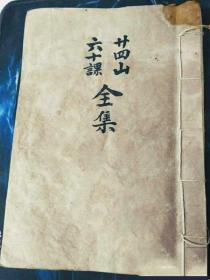 廿四山
六十課
全集